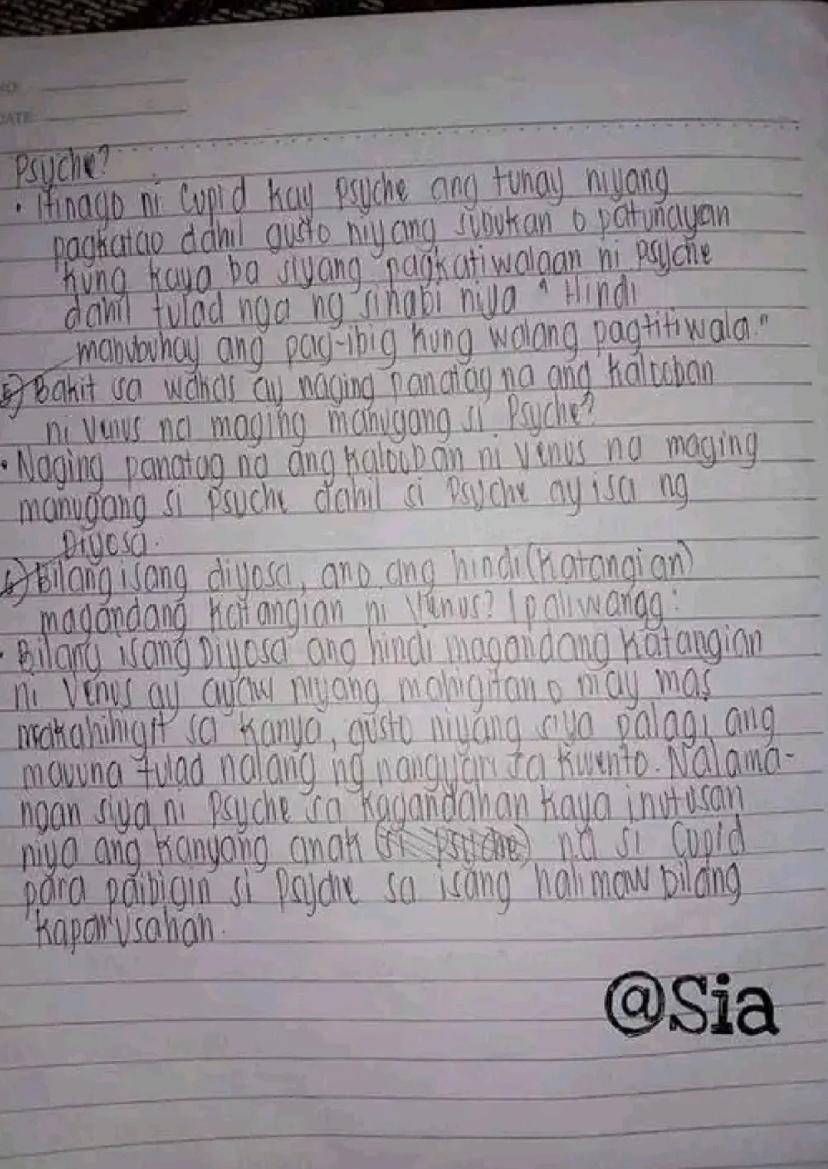 NO:
DATE:
Psyche?
• Itinago ni Cupid kay Psyche ang tunay niyang
pagkatao dahil gusto niyang subukan o patunayan
kung kaya ba siyang pagkatiwalaan ni Psyche
dahil tulad nga ng sinabi niya " Hindi
mabubuhay ang pag-ibig kung walang pagtitiwala."
5) Bakit sa wakas ay naging panatag na ang kalooban
ni Venus na maging manugang si Psyche?
• Naging panatag na ang kalooban ni Venus na maging
manugang si Psyche dahil si Psyche ay isa ng
Diyosa.
6) Bilang isang diyosa, ano ang hindi (katangian)
magandang katangian ni Venus? Ipaliwanagg:
• Bilang isang Diyosa ang hindi magandang katangian
ni Venus ay ayaw niyang mahigitan o may mas
makahihigit sa kanya, gusto niyang siya palagi ang
mauuna tulad nalang ng nangyari sa kwento. Nalama-
ngan siya ni Psyche sa kagandahan kaya inutusan
niya ang kanyang anak (si Psyche) na si Cupid
para paibigin si Psyche sa isang halimaw bilang
kaparusahan.
@Sia